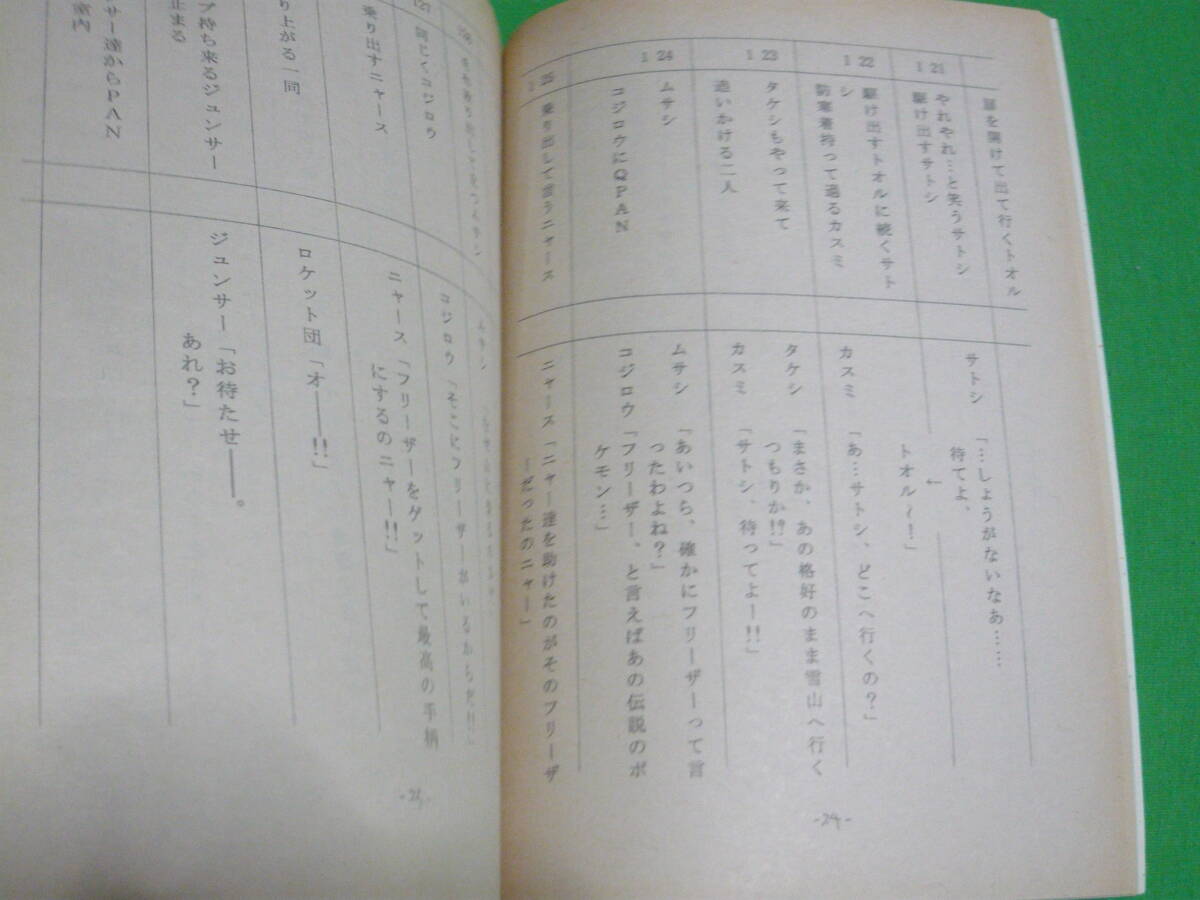 扉を開けて出て行くトオル
121
やれやれ…と笑うサトシ
駆け出すサトシ
サトシ
「…しょうがないなあ……
待てよ、
←
トオル〜！」
122
駆け出すトオルに続くサト
シ
防寒着持って過るカスミ
カスミ
「あ…サトシ、どこへ行くの？」
123
タケシもやって来て
追いかける二人
タケシ
「まさか、あの格好のまま雪山へ行く
つもりか!?」
カスミ
「サトシ、待ってよー!!」
124
ムサシ
コジロウにQPAN
ムサシ
「あいつら、確かにフリーザーって言
ったわよね？」
コジロウ「フリーザー、と言えばあの伝説のポ
ケモン…」
125
乗り出して言うニャース
ニャース「ニャー達を助けたのがそのフリーザ
ーだったのニャー」
-24-
126
ムサシ
127
同じくコジロウ
コジロウ「そこにフリーザーがいるからだ!!」
乗り出すニャース
ニャース「フリーザーをゲットして最高の手柄
にするのニャー!!」
り上がる一同
ロケット団「オ――!!」
プ持ち来るジュンサー
止まる
ジュンサー「お待たせ――。
あれ？」
ンサー達からPAN
室内
-25-